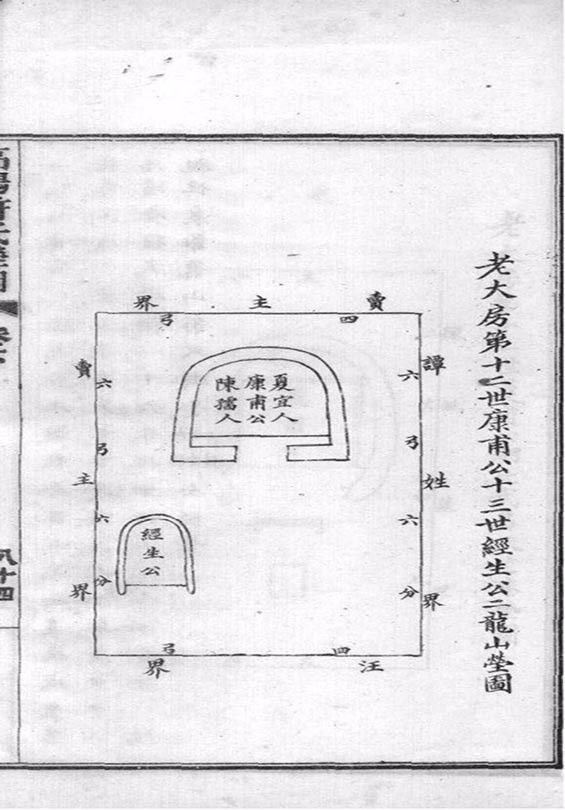 老大房第十二世康甫公十三世經生公二龍山塋圖
賣主界
四弓
譚姓界
六弓六分
夏宜人
康甫公
陳孺人
經生公
賣主界
六弓六分
汪界
四弓
八十四